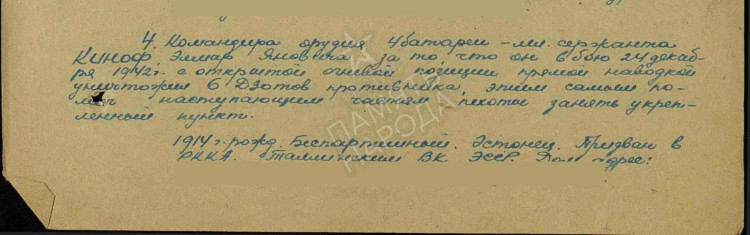 4. Командира орудия 4 батареи – мл. сержанта
Киноф, Элмар Яновича за то, что он в бою 24 декаб-
ря 1942г. с открытой огневой позиции прямой наводкой
уничтожил 6 ДЗотов противника, этим самым по-
мог наступающим частям пехоты занять укреп-
ленный пункт.
1914 г. рожд. Беспартийный. Эстонец. Призван в
РККА. Таллинским ВК ЭССР. Дом. адрес:
ПАМЯТЬ
НАРОДА